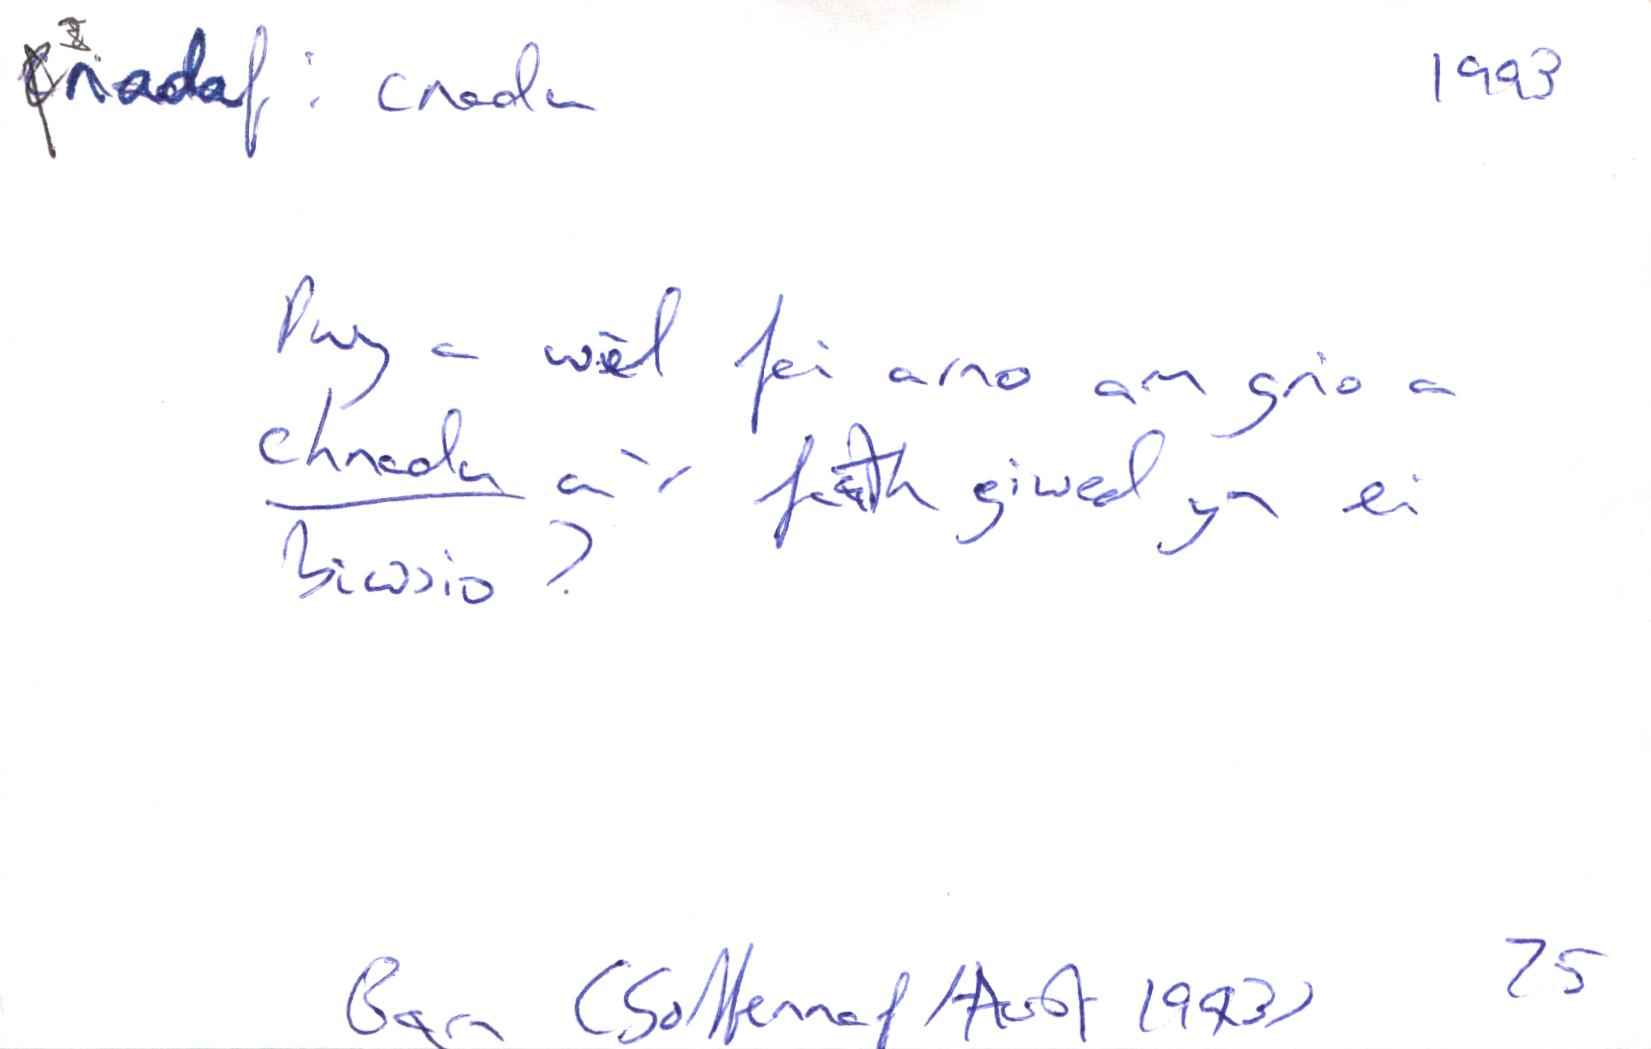 cnadaf: cnadu 1993
Pwy a wêl fei arno am grio a
chnadu a'r fath giwed yn ei
biwsio?
Barn (Gorffennaf/Awst 1993) 75